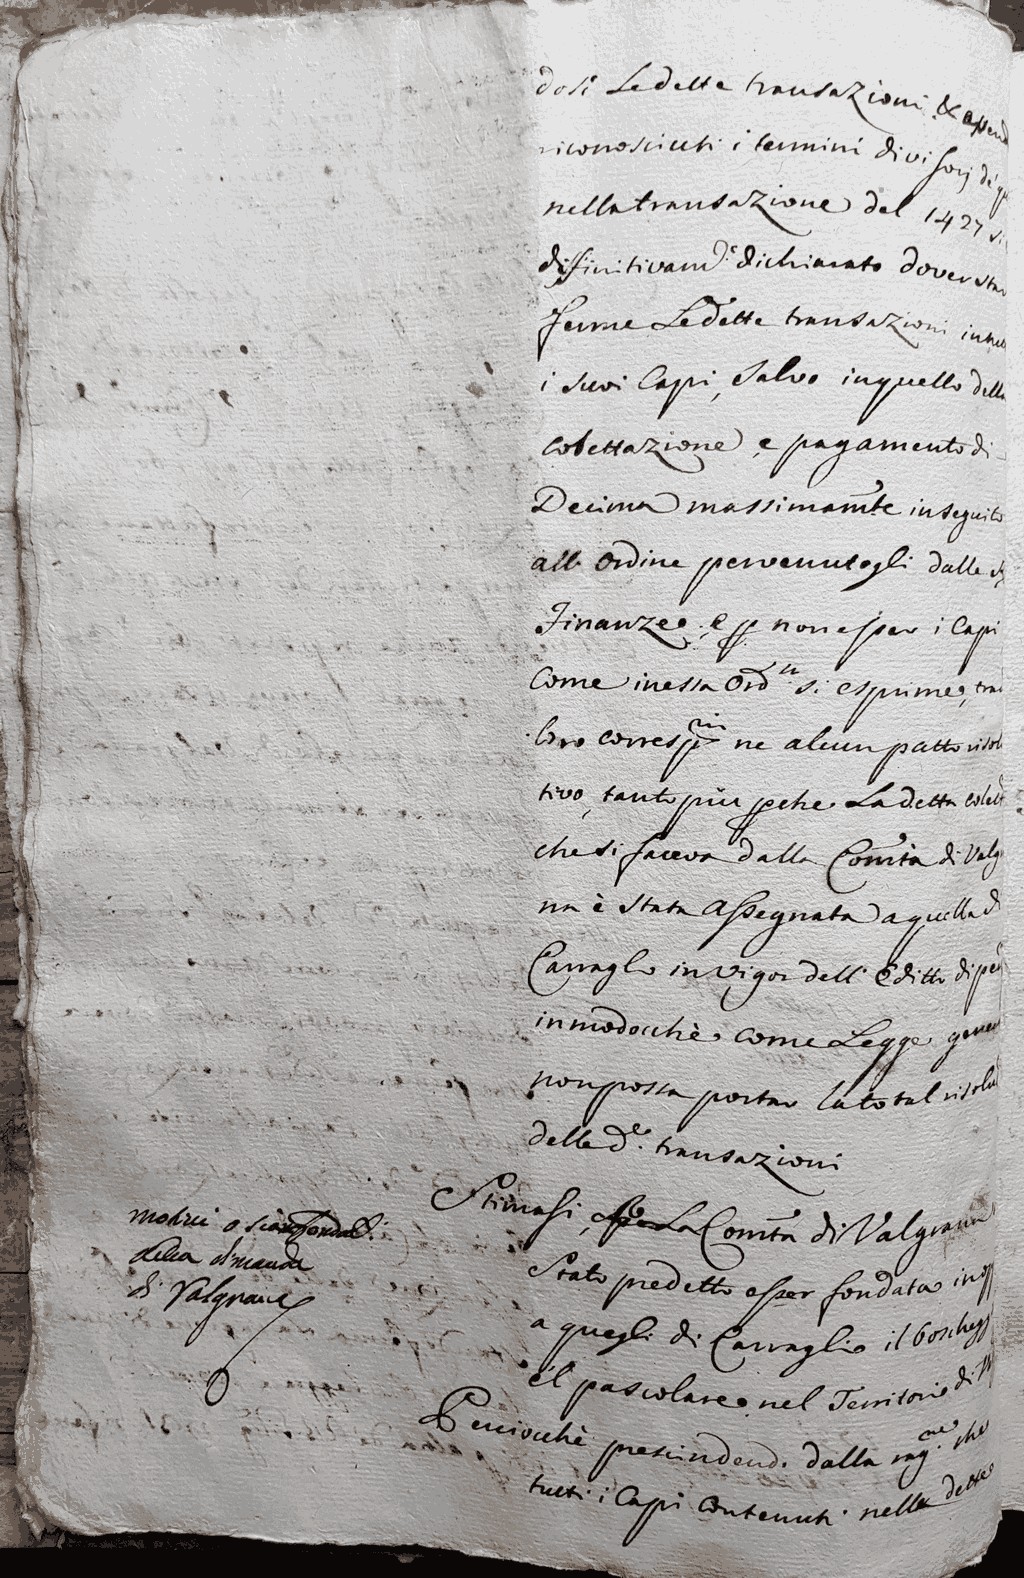 dosi Ledette transazioni, & essend
riconosciuti i termini divisorj de q
nella transazione del 1427 si
diffinitivam.e dichiarato dover star
ferme Ledette transazioni in tu
i suoi Capi, Salvo in quello della
cotettazione, e pagamento di
Decima massimam.te in seguito
all' ordine pervenutogli dalle
Finanze, e p non esser i Capi
Come in essa Ord.n si esprime, tra
loro corresp ne alcun patto risol
tivo, tanto più pche La detta colett
che si faceva dalla Com.tà di Valg
na è stata Assegnata a quella di
Carraglio in vigor dell' Editto di per
in modochè come Legge gener
non possa portar la total risolu
delle d.e transazioni
Stimasi, La Com.tà di Valgrana
Stato predetto esser fondata in opp
a quegli di Carraglio il boschegg
é'l pascolare nel Territorio di
Perciocchè prescindend. dalla rag.ne che
tutti i Capi Contenuti nelle dette
motivi o sian fondam.
della dimanda
di Valgrana